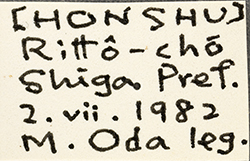 [HONSHU]
Rittô-chô
Shiga Pref.
2.vii.1982
M. Oda leg.